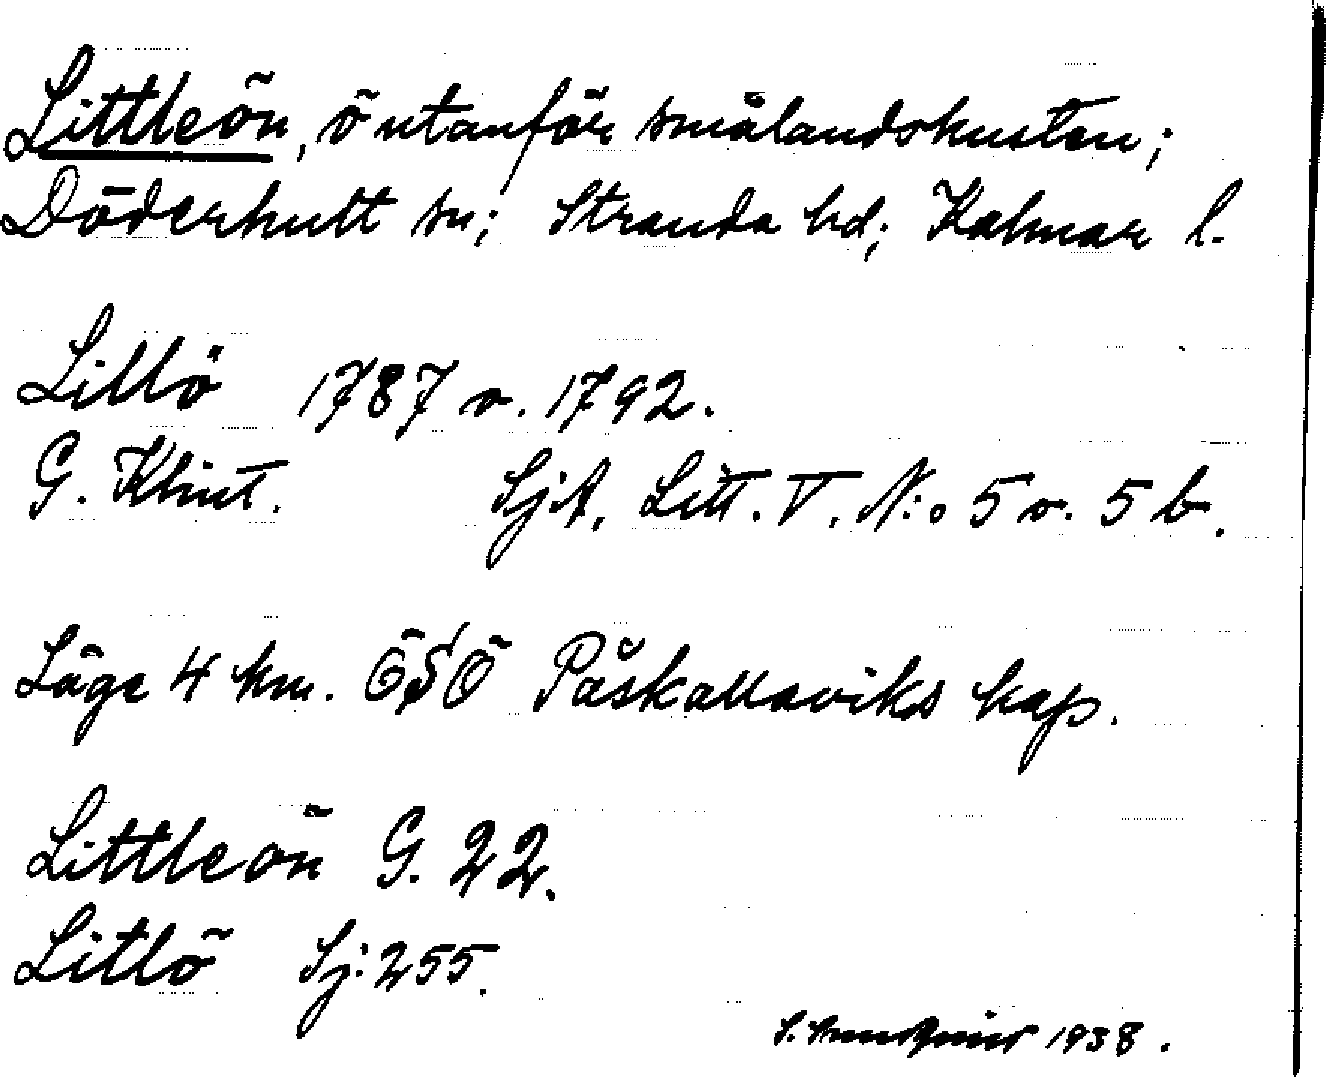 Littleön, ö utanför smålandskusten;
Döderhult sn; Stranda hd; Kalmar l.
Lillö 1787 o. 1792.
G. Klint. SjA, Litt. V. N:o 5 o. 5 b.
Läge 4 km. ÖSÖ Påskallaviks kap.
Littleön G. 22.
Litlö Sj: 255.
S. 1938.